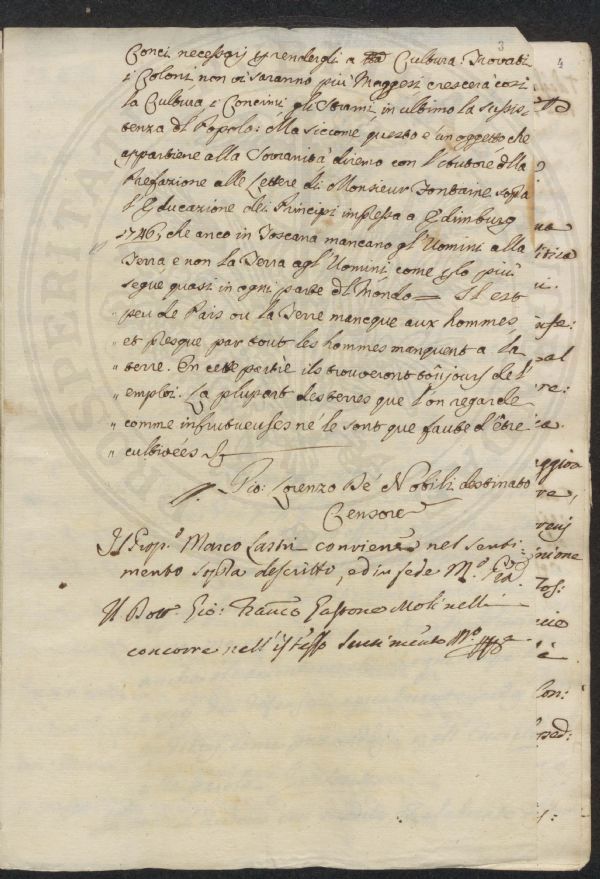 3
4
Conci necessarj p rendergli a Cultura: Trovati
i Coloni non vi saranno più Maggesi crescerà così
la Cultura i Concimi gli Strami, in ultimo la sussis:
tenza del Popolo: Ma siccome questo è un oggetto che
appartiene alla Sovranità diremo con l'Autore della
Prefazione alle Lettere di Monsieur Fontaine sopra
l'Educazione dei Principi impressa a Edimburg
1746, che anco in Toscana mancano gl'Uomini alla
Terra, e non la Terra agl'Uomini, come p lo più
segue quasi in ogni parte del Mondo = Il est
„ peu de Pais ou la Terre mancque aux hommes,
„ et presque par tout les hommes manquent a la
„ terre. En cette partie ils trouveront toûjours de l'
„ emploi. La plupart des terres que l'on regarde
„ comme infructueuses né le sont que faute d'être
„ cultivées
Gio: Lorenzo De' Nobili destinato
Censore
Il Prop.º Marco Lastri conviene nel senti:
mento sopra descritto, ed in fede M.º Pr.ª
Il Dott. Gio: Franco Gastone Molinelli
concorre nell'istesso Sentimento M.º